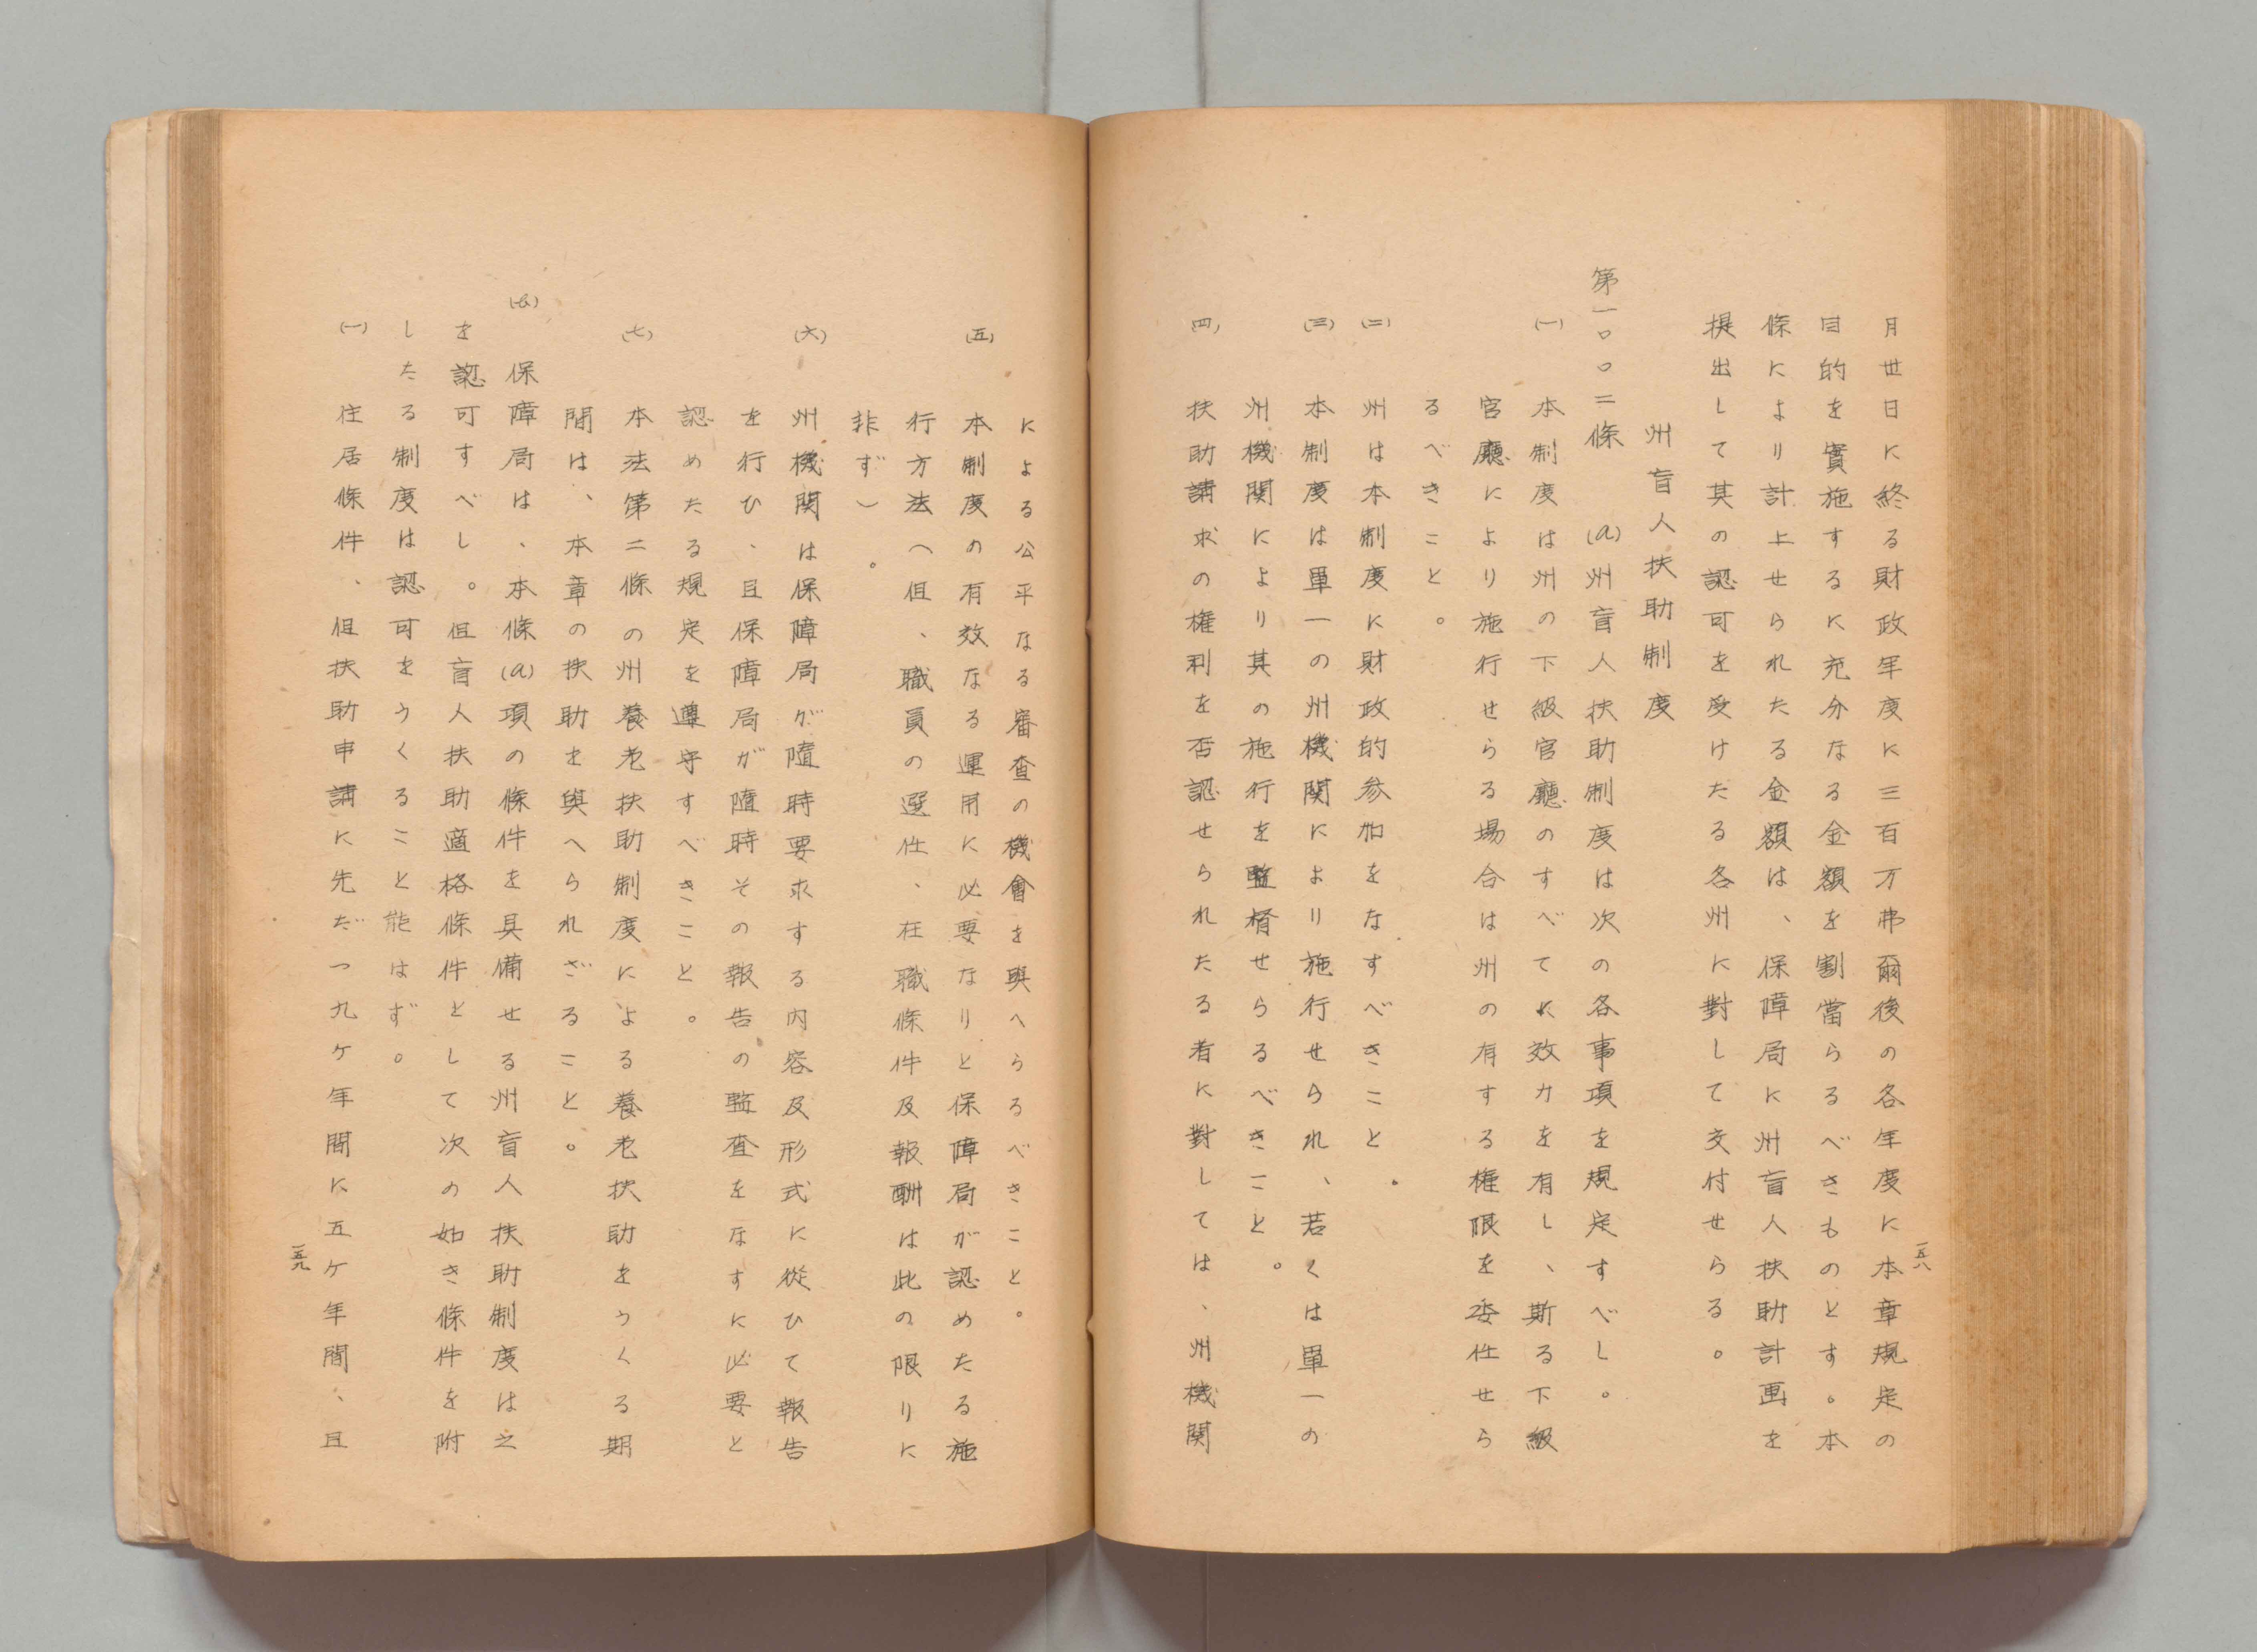 月丗日に終る財政年度に三百万弗爾後の各年度に本章規定の
目的を實施するに充分なる金額を割當らるべきものとす。本
條により計上せられたる金額は、保障局に州盲人扶助計画を
提出して其の認可を受けたる各州に對して交付せらる。
州盲人扶助制度
第一〇〇二條 (a)州盲人扶助制度は次の各事項を規定すべし。
(一) 本制度は州の下級官廳のすべてに效力を有し、斯る下級
官廳により施行せらる場合は州の有する権限を委任せら
るべきこと。
(二) 州は本制度に財政的参加をなすべきこと。
(三) 本制度は單一の州機関により施行せられ、若くは單一の
州機関により其の施行を監督せらるべきこと。
(四) 扶助請求の権利を否認せられたる者に對しては、州機関
一五八
による公平なる審査の機會を與へらるべきこと。
(五) 本制度の有效なる運用に必要なりと保障局が認めたる施
行方法(但、職員の選任、在職條件及報酬は此の限りに
非ず)。
(六) 州機関は保障局が隨時要求する内容及形式に從ひて報告
を行ひ、且保障局が隨時その報告の監査をなすに必要と
認めたる規定を遵守すべきこと。
(七) 本法第二條の州養老扶助制度による養老扶助をうくる期
間は、本章の扶助を與へられざること。
(b) 保障局は、本條(a)項の條件を具備せる州盲人扶助制度は之
を認可すべし。但盲人扶助適格條件として次の如き條件を附
したる制度は認可をうくること能はず。
(一) 住居條件、但扶助申請に先だつ九ケ年間に五ケ年間、且
一五九